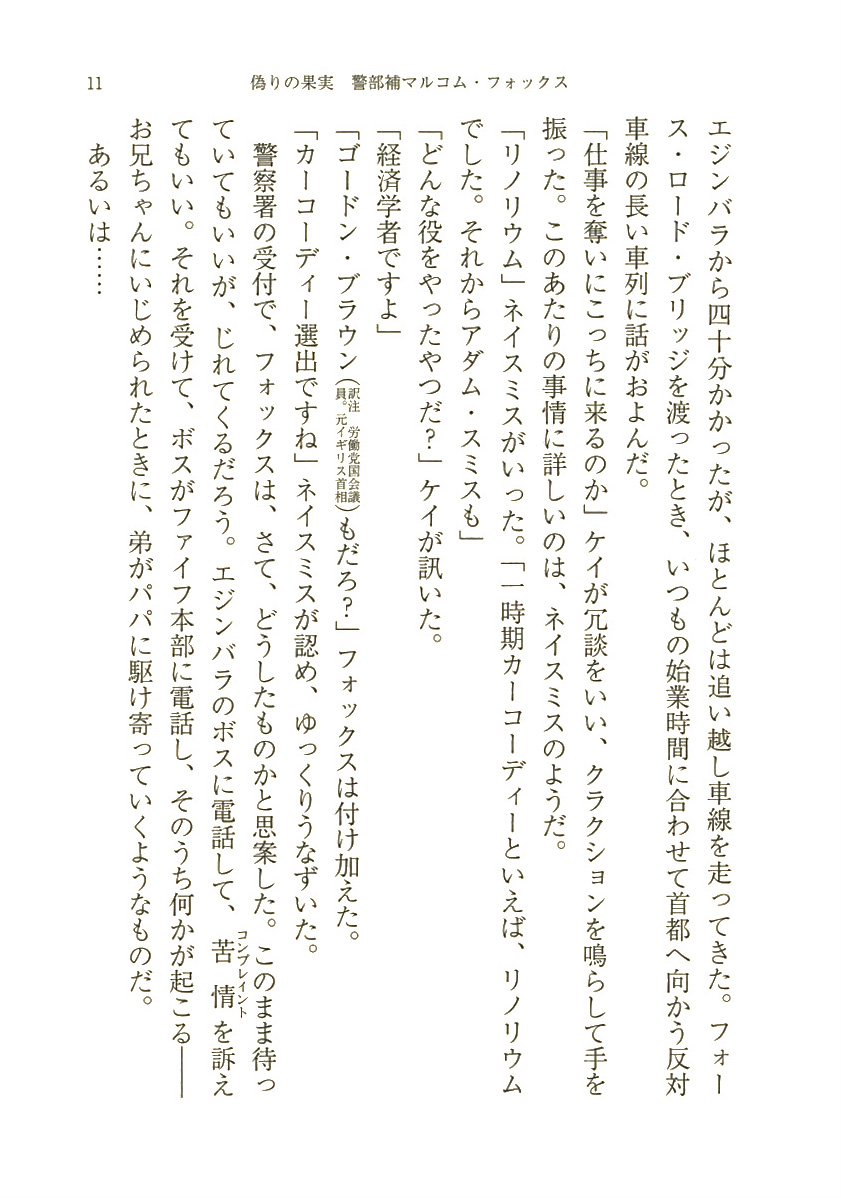 11
偽りの果実　警部補マルコム・フォックス
エジンバラから四十分かかったが、ほとんどは追い越し車線を走ってきた。フォー
ス・ロード・ブリッジを渡ったとき、いつもの始業時間に合わせて首都へ向かう反対
車線の長い車列に話がおよんだ。
「仕事を奪いにこっちに来るのか」ケイが冗談をいい、クラクションを鳴らして手を
振った。このあたりの事情に詳しいのは、ネイスミスのようだ。
「リノリウム」ネイスミスがいった。「一時期カーコーディーといえば、リノリウム
でした。それからアダム・スミスも」
「どんな役をやったやつだ？」ケイが訊いた。
「経済学者ですよ」
「ゴードン・ブラウン（訳注　労働党国会議員。元イギリス首相）もだろ？」フォックスは付け加えた。
「カーコーディー選出ですね」ネイスミスが認め、ゆっくりうなずいた。
　警察署の受付で、フォックスは、さて、どうしたものかと思案した。このまま待っ
ていてもいいが、じれてくるだろう。エジンバラのボスに電話して、苦情コンプレイントを訴え
てもいい。それを受けて、ボスがファイフ本部に電話し、そのうち何かが起こる――
お兄ちゃんにいじめられたときに、弟がパパに駆け寄っていくようなものだ。
　あるいは……